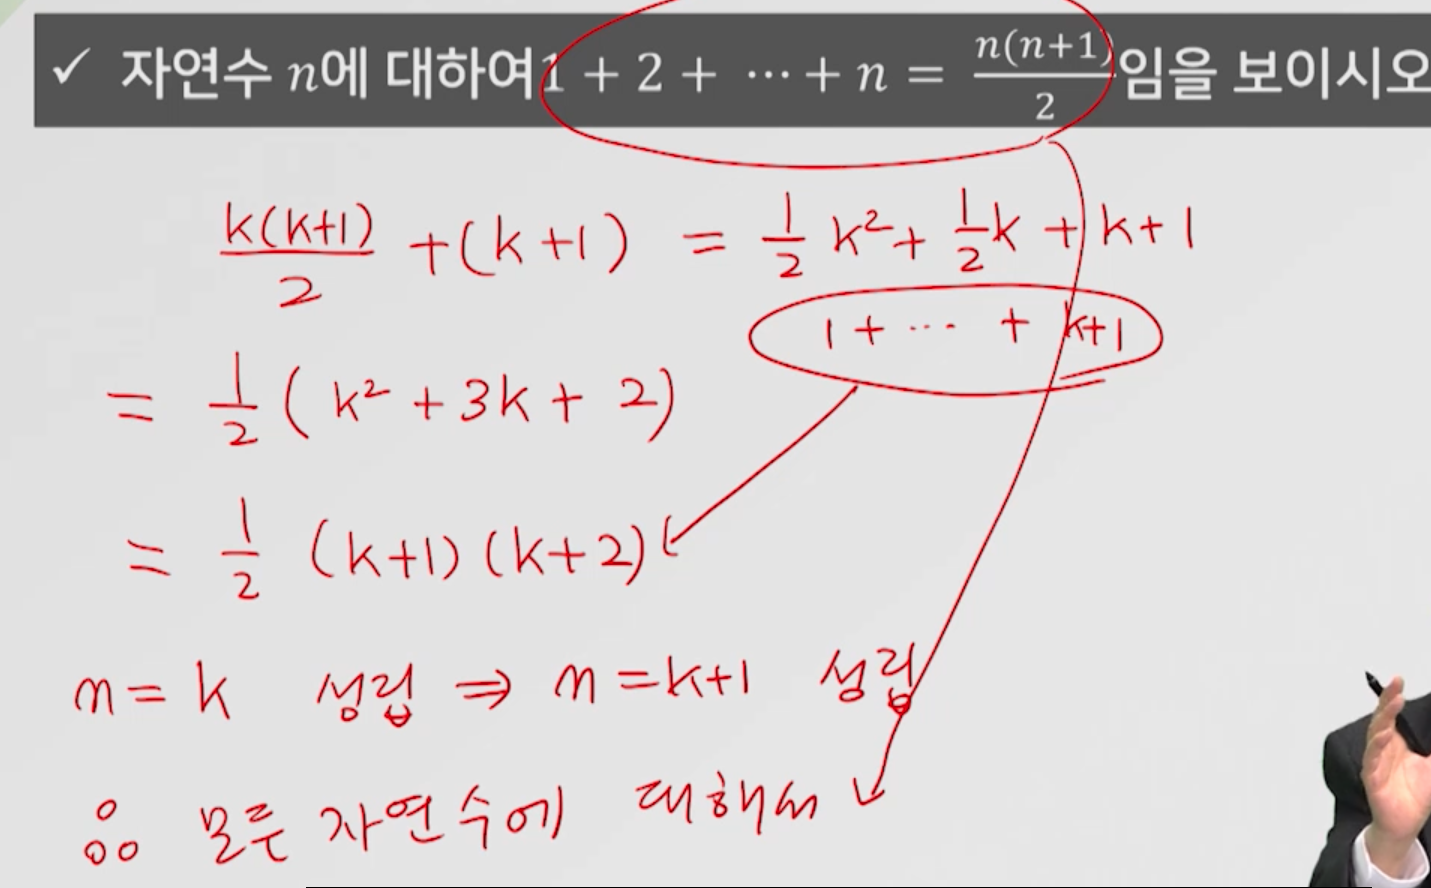 ✓ 자연수 n에 대하여 1 + 2 + ⋯ + n = n(n+1)/2 임을 보이시오
k(k+1)/2 + (k+1) = 1/2 k² + 1/2 k + k+1
1 + ⋯ + k+1
= 1/2 ( k² + 3k + 2)
= 1/2 (k+1)(k+2)
n = k 성립 ⇒ n = k+1 성립
∴ 모든 자연수에 대해서